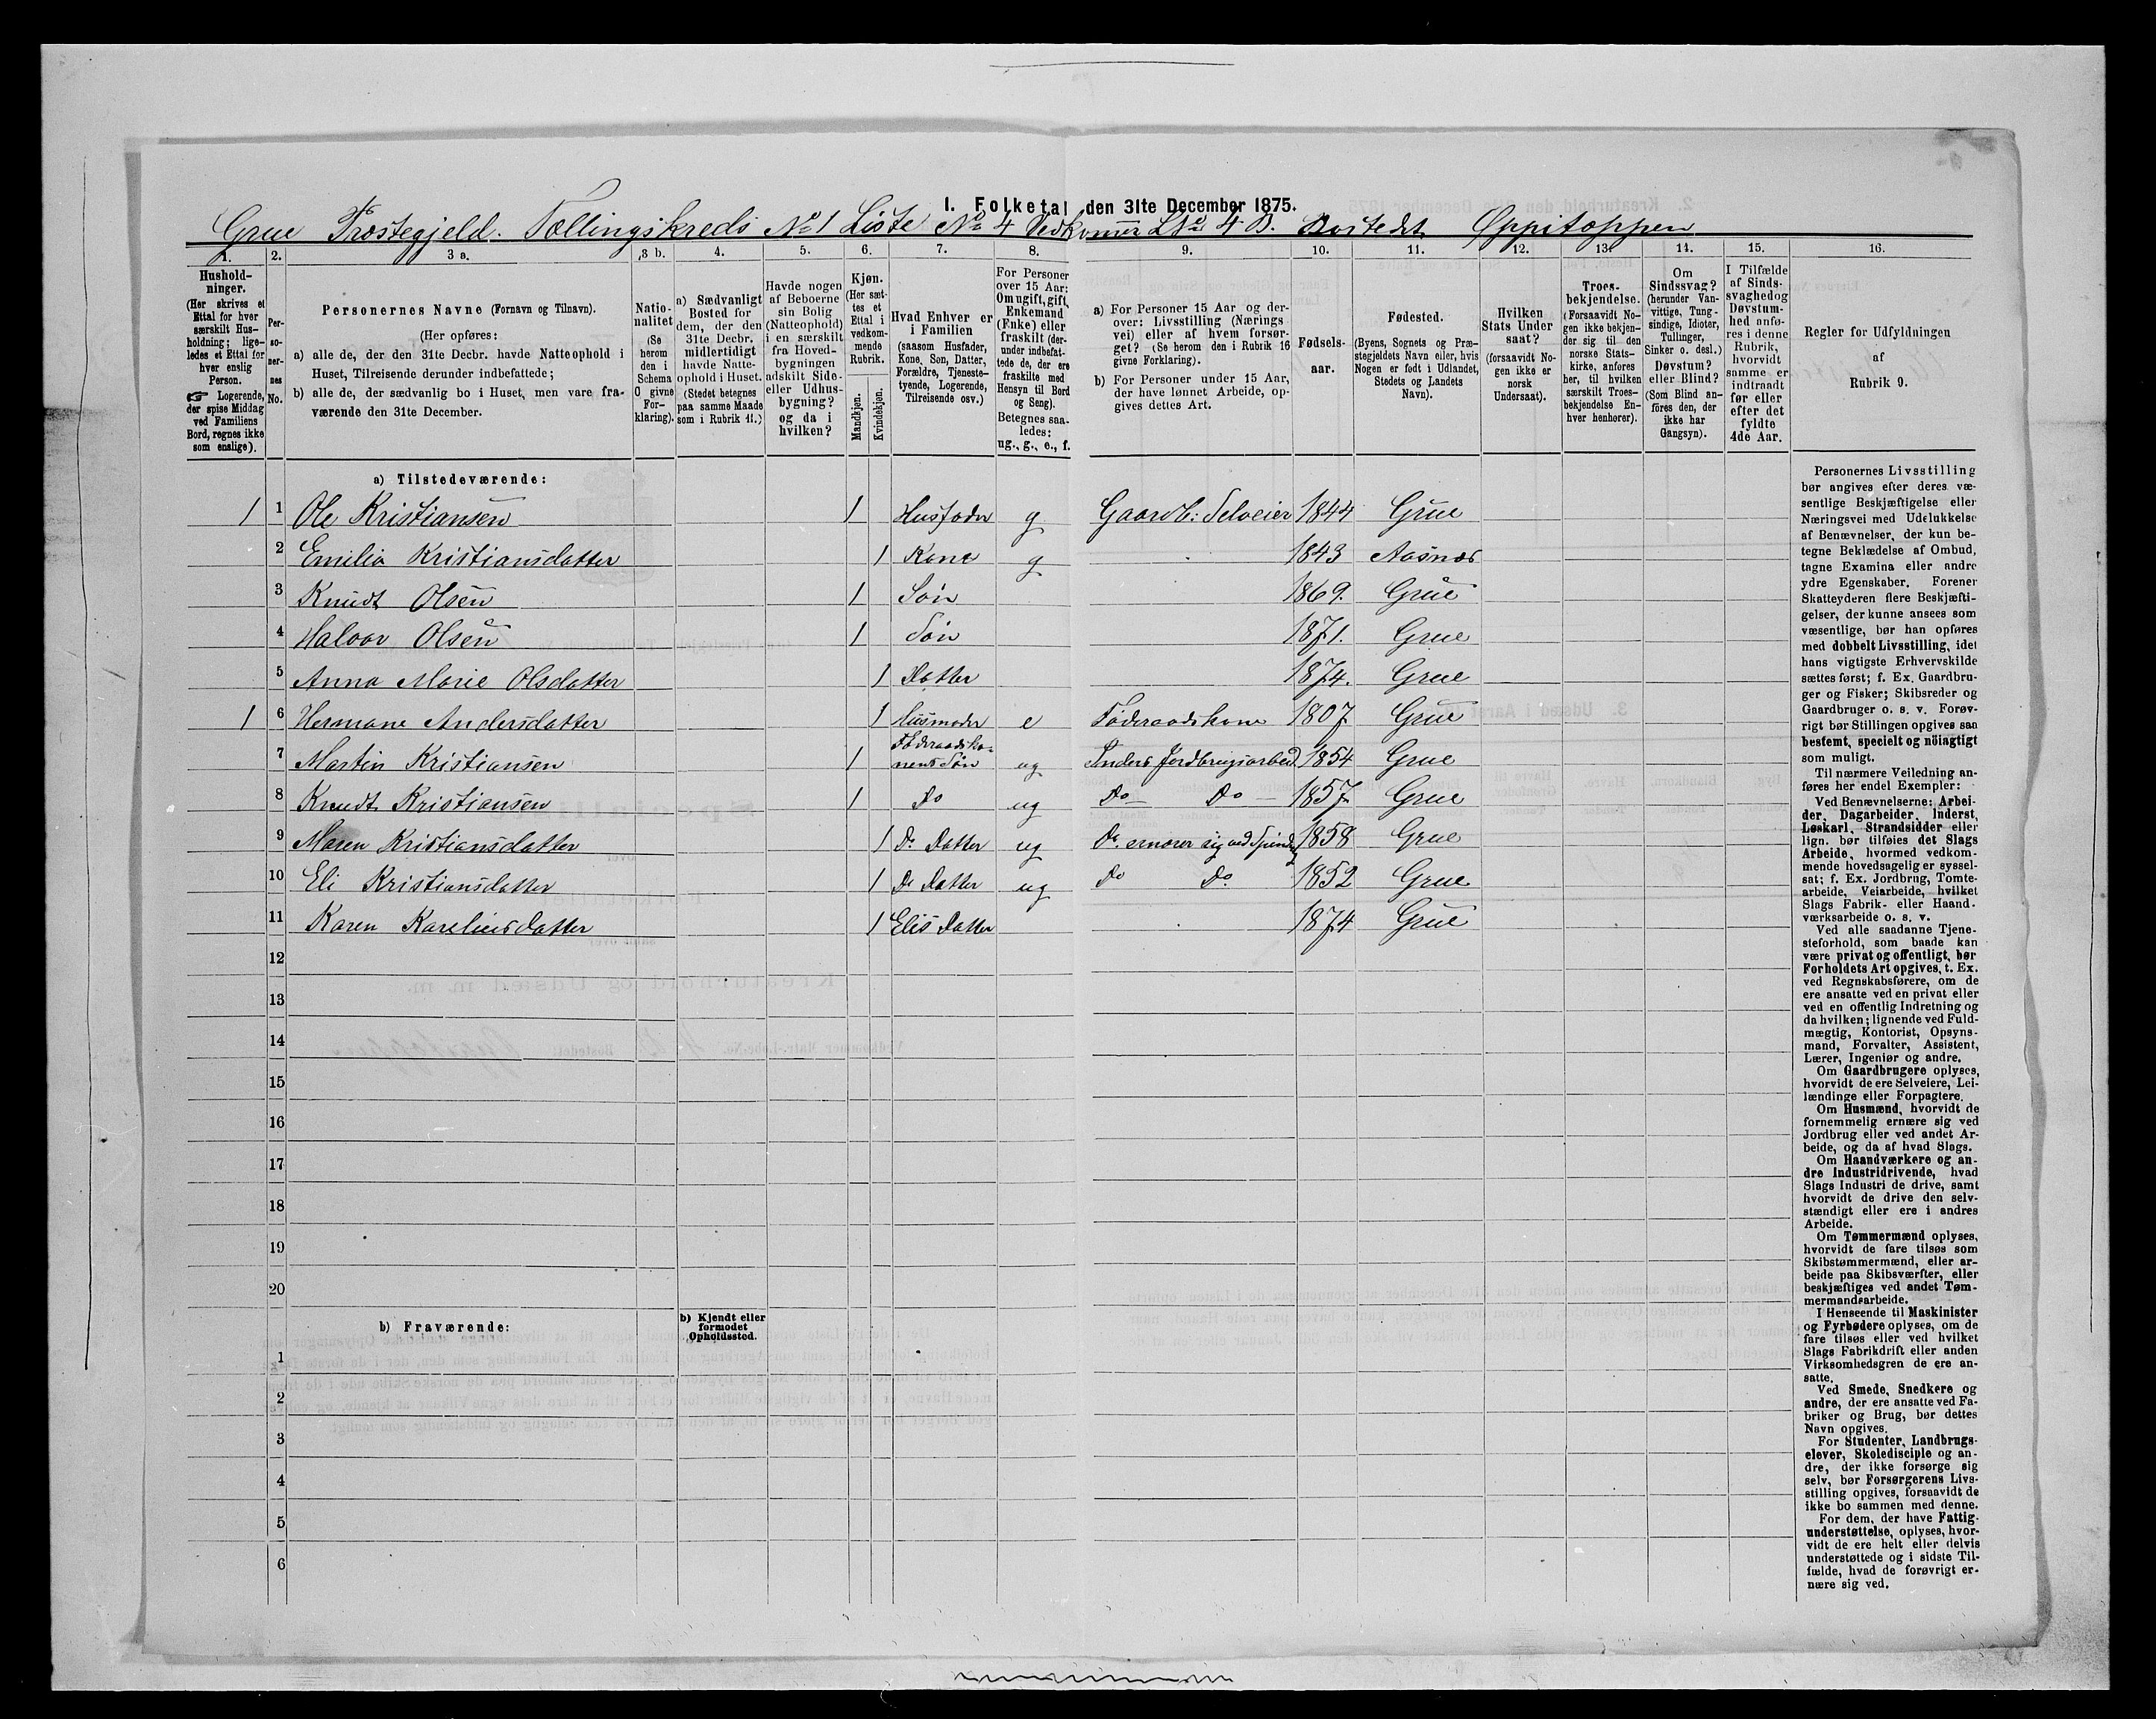 I. Folketal den 31te December 1875.
Grue Præstegjeld. Tællingskreds No 1 Liste No 4 Vedkommer LNo 4 B. Bostedt Oppitoppen
1. 2. 3 a. 3 b. 4. 5. 6. 7. 8. 9. 10. 11. 12. 13. 14. 15. 16.
Hushold-
ninger.
(Her skrives et
Ettal for hver
særskilt Hus-
holdning; lige-
ledes et Ettal for
hver enslig
Person.
☞ Logerende,
der spise Middag
ved Familiens
Bord, regnes ikke
som enslige).
Per-
so-
ner-
nes
No.
Personernes Navne (Fornavn og Tilnavn).
(Her opføres:
a) alle de, der den 31te Decbr. havde Natteophold i
Huset, Tilreisende derunder indbefattede;
b) alle de, der sædvanlig bo i Huset, men vare fra-
værende den 31te December.
Natio-
nalitet
(Se
herom
den i
Schema
O givne
For-
klaring).
a) Sædvanligt
Bosted for
dem, der den
31te Decbr.
midlertidigt
havde Natte-
ophold i Huset.
(Stedet betegnes
paa samme Maade
som i Rubrik 11.)
Havde nogen
af Beboerne
sin Bolig
(Natteophold)
i en særskilt
fra Hoved-
bygningen
adskilt Side-
eller Udhus-
bygning?
og da i
hvilken?
Kjøn.
(Her sæt-
tes et
Ettal i
vedkom-
mende
Rubrik.
Mandkjøn.
Kvindekjøn.
Hvad Enhver er
i Familien
(saasom Husfader,
Kone, Søn, Datter,
Forældre, Tjeneste-
tyende, Logerende,
Tilreisende osv.)
For Personer
over 15 Aar:
Om ugift, gift,
Enkemand
(Enke) eller
fraskilt (der-
under indbefat-
tede de, der ere
fraskilte med
Hensyn til Bord
og Seng).
Betegnes saa-
ledes:
ug., g., e., f.
a) For Personer 15 Aar og der-
over: Livsstilling (Nærings
vei) eller af hvem forsør-
get? (Se herom den i Rubrik 16
givne Forklaring).
b) For Personer under 15 Aar,
der have lønnet Arbeide, op-
gives dettes Art.
Fødsels-
aar.
Fødested.
(Byens, Sognets og Præ-
stegjeldets Navn eller, hvis
Nogen er født i Udlandet,
Stedets og Landets
Navn).
Hvilken
Stats Under
saat?
(forsaavidt No-
gen ikke er
norsk
Undersaat).
Troes-
bekjendelse.
(Forsaavidt No-
gen ikke bekjen-
der sig til den
norske Stats-
kirke, anføres
her, til hvilken
særskilt Troes-
bekjendelse En-
hver henhører).
Om
Sindssvag?
(herunder Van-
vittige, Tung-
sindige, Idioter,
Tullinger,
Sinker o. desl.)
Døvstum?
eller Blind?
(Som Blind an-
føres den, der
ikke har
Gangsyn).
I Tilfælde
af Sinds-
svaghed og
Døvstum-
hed anfø-
res i denne
Rubrik,
hvorvidt
samme er
indtraadt
før eller
efter det
fyldte
4de Aar.
Regler for Udfyldningen
af
Rubrik 9.
a) Tilstedeværende:
1 1 Ole Kristiansen 1 Husfader g Gaardb: Selveier 1844 Grue
2 Emilia Kristiansdatter 1 Kone g 1843 Aasnæs
3 Knudt Olsen 1 Søn 1869. Grue
4 Halvor Olsen 1 Søn 1871. Grue
5 Anna Marie Olsdatter 1 Datter 1874. Grue
1 6 Hermane Andersdatter 1 Husmoder e Føderaadskone 1807 Grue
7 Martin Kristiansen 1 Føderaadsko-
nens Søn ug Inderst Jordbrugsarbed 1854 Grue
8 Knudt Kristiansen 1 Do ug Do — Do — 1857 Grue
9 Maren Kristiansdatter 1 Do Datter ug Do. ernærer sig ved Spinding 1858 Grue
10 Eli Kristiansdatter 1 Do Datter ug Do Do. 1852 Grue
11 Karen Kareliusdatter 1 Elis Datter 1874 Grue
12
13
14
15
16
17
18
19
20
b) Fraværende:
b) Kjendt eller
formodet
Opholdssted.
1
2
3
4
5
6
Personernes Livsstilling
bør angives efter deres væ-
sentlige Beskjæftigelse eller
Næringsvei med Udelukkelse
af Benævnelser, der kun be-
tegne Beklædelse af Ombud,
tagne Examina eller andre
ydre Egenskaber. Forener
Skatteyderen flere Beskjæfti-
gelser, der kunne ansees som
væsentlige, bør han opføres
med dobbelt Livsstilling, idet
hans vigtigste Erhvervskilde
sættes først; f. Ex. Gaardbru-
ger og Fisker; Skibsreder og
Gaardbruger o. s. v. Forøv-
rigt bør Stillingen opgives saa
bestemt, specielt og nöiagtigt
som muligt.
Til nærmere Veiledning an-
føres her endel Exempler:
Ved Benævnelserne: Arbei-
der, Dagarbeider, Inderst,
Løskarl, Strandsidder eller
lign. bør tilføies det Slags
Arbeide, hvormed vedkom-
mende hovedsagelig er syssel-
sat; f. Ex. Jordbrug, Tomte-
arbeide, Veiarbeide, hvilket
Slags Fabrik- eller Haand-
værksarbeide o. s. v.
Ved alle saadanne Tjene-
steforhold, som baade kan
være privat og offentligt, bør
Forholdets Art opgives, t. Ex.
ved Regnskabsførere, om de
ere ansatte ved en privat eller
ved en offentlig Indretning og
da hvilken; lignende ved Fuld-
mægtig, Kontorist, Opsyns-
mand, Forvalter, Assistent,
Lærer, Ingeniør og andre.
Om Gaardbrugere oplyses,
hvorvidt de ere Selveiere, Lei-
lændinge eller Forpagtere.
Om Husmænd, hvorvidt de
fornemmelig ernære sig ved
Jordbrug eller ved andet Ar-
beide, og da af hvad Slags.
Om Haandværkere og an-
dre Industridrivende, hvad
Slags Industri de drive, samt
hvorvidt de drive den selv-
stændigt eller ere i andres
Arbeide.
Om Tømmermænd oplyses,
hvorvidt de fare tilsøs som
Skibstømmermænd, eller ar-
beide paa Skibsværfter, eller
beskjæftiges ved andet Tøm-
mermandsarbeide.
I Henseende til Maskinister
og Fyrbødere oplyses, om de
fare tilsøs eller ved hvilket
Slags Fabrikdrift eller anden
Virksomhedsgren de ere an-
satte.
Ved Smede, Snedkere og
andre, der ere ansatte ved Fa-
briker og Brug, bør dettes
Navn opgives.
For Studenter, Landbrugs-
elever, Skoledisciple og an-
dre, der ikke forsørge sig
selv, bør Forsørgerens Livs-
stilling opgives, forsaavidt de
ikke bo sammen med denne.
For dem, der have Fattig-
understøttelse, oplyses, hvor-
vidt de ere helt eller delvis
understøttede og i sidste Til-
fælde, hvad de forøvrigt er-
nære sig ved.